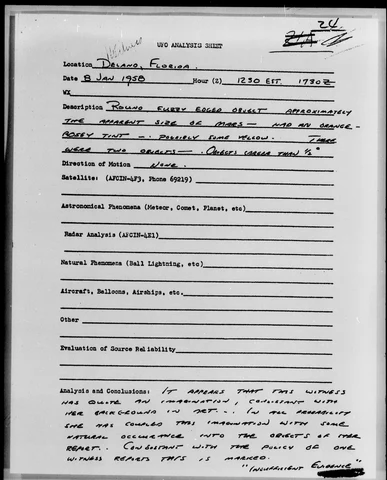 24
Witness
UFO ANALYSIS SHEET
Location DELAND, FLORIDA.
Date 8 JAN 1958 Hour (Z) 1230 EST. 1730Z
WX
Description ROUND FUZZY EDGED OBJECT APPROXIMATELY
THE APPARENT SIZE OF MARS — HAD AN ORANGE-
ROSEY TINT —. POSSIBLY SOME YELLOW. THERE
WERE TWO OBJECTS —. OBJECTS LARGER THAN ½°
Direction of Motion NONE.
Satellite: (AFCIN-4F3, Phone 69219)
Astronomical Phenomena (Meteor, Comet, Planet, etc)
Radar Analysis (AFCIN-4E1)
Natural Phenomena (Ball Lightning, etc)
Aircraft, Balloons, Airships, etc.
Other
Evaluation of Source Reliability
Analysis and Conclusions: IT APPEARS THAT THIS WITNESS
HAS QUITE AN IMAGINATION, CONSISTANT WITH
HER BACKGROUND IN ART... IN ALL PROBABILITY
SHE HAS COUPLED THIS IMAGINATION WITH SOME
NATURAL OCCURANCE INTO THE OBJECTS OF HER
REPORT. CONSISTANT WITH THE POLICY OF ONE
WITNESS REPORTS THIS IS MARKED.
"INSUFFICIENT EVIDENCE"